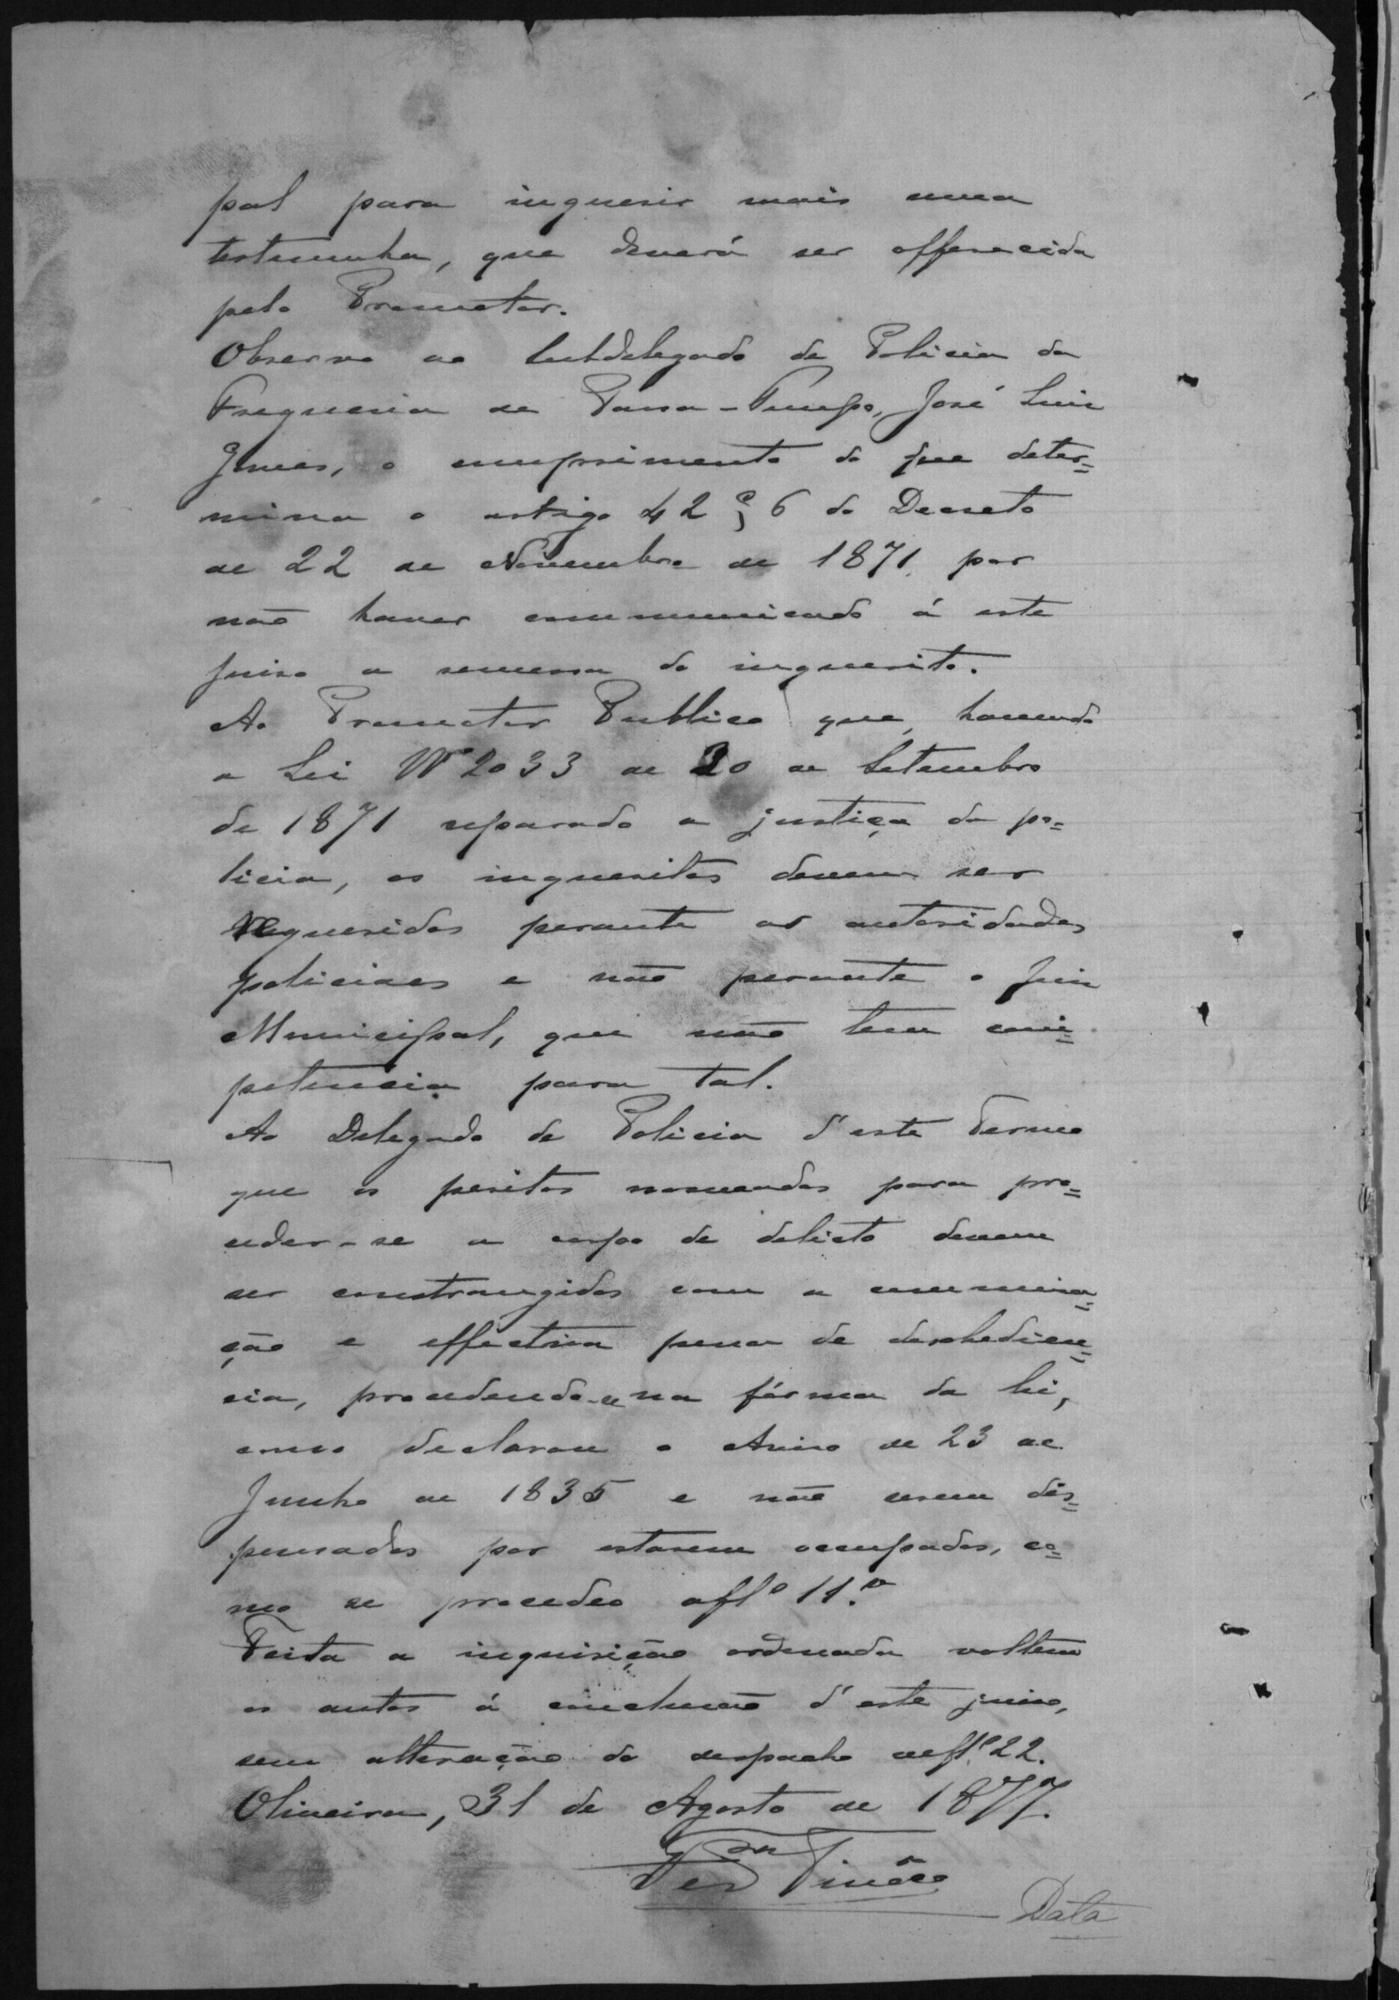 pal para inquerir mais uma
testemunha, que deverá ser offerecida
pelo Promotor.
Observo ao Subdelegado de Policia da
Freguesia de Passa-Tempo, José Luis
Gomes, o cumprimento do que deter=
mina o artigo 42 § 6 do Decreto
de 22 de Novembro de 1871, por
não haver communicado á este
juiso a remessa do inquerito.
Ao Promotor Publico que, havendo
a Lei Nº 2033 de 20 de Setembro
de 1871 separado a justiça da po=
licia, os inqueritos devem ser
requeridos perante as autoridades
policiaes e não perante o Juis
Municipal, que não tem com=
petencia para tal.
Ao Delegado de Policia d'este Termo
que os peritos nomeados para pro=
ceder-se a corpo de delicto devem
ser constrangidos com a commina=
ção e effectiva pena de desobedien=
cia, procedendo-se na fórma da lei,
como declarou o Aviso de 23 de
Junho de 1835 e não serem dis=
pensados por estarem occupados, co=
mo se procedeo afl.º 11.v
Feita a inquisição ordenada voltem
os autos á conclusão d'este juiso,
sem alteração do despacho defl.º 22.
Oliveira, 31 de Agosto de 1877.
Tinôco
Data